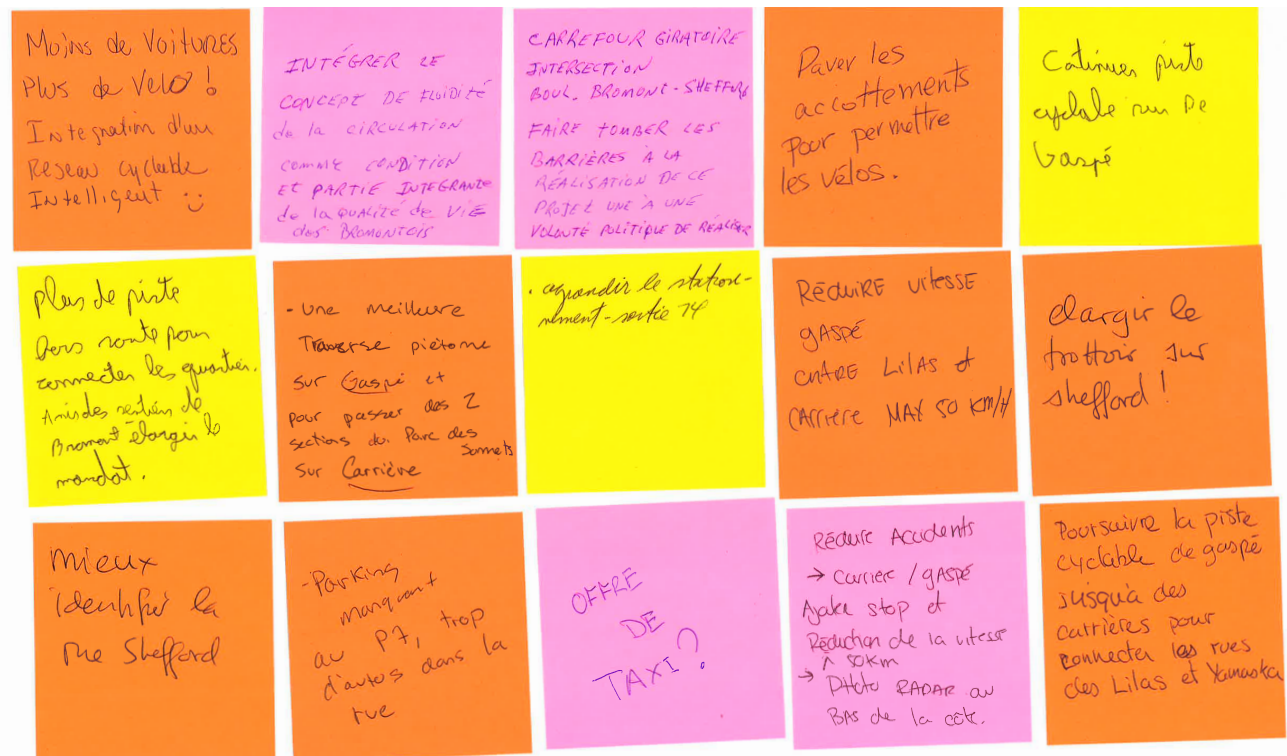 Moins de Voitures
Plus de Velo !
Integration d'un
Reseau cyclable
Intelligent :)
INTÉGRER LE
CONCEPT DE FLUIDITÉ
de la CIRCULATION
comme CONDITION
ET PARTIE INTEGRANTE
de la QUALITÉ de VIE
des BROMONTOIS
CARREFOUR GIRATOIRE
INTERSECTION
BOUL. BROMONT - SHEFFORD
FAIRE TOMBER LES
BARRIÈRES À LA
RÉALISATION DE CE
PROJET UNE À UNE
VOLONTÉ POLITIQUE DE RÉALISER
Paver les
accottements
pour permettre
les vélos.
Continuer piste
cyclable rue De
Gaspé
plus de piste
hors route pour
connecter les quartiers.
Amis des sentiers de
Bromont élargir le
mandat.
- Une meilleure
Traverse piétonne
sur Gaspé et
pour passer des 2
sections du Parc des
Sommets
sur Carrière
. agrandir le station-
nement - sortie 74
RÉDUIRE VITESSE
GASPÉ
ENTRE LILAS et
CARRIERE MAX 50 KM/H
élargir le
trottoir sur
shefford !
Mieux
identifier la
rue Shefford
- Parking
manquant
au P7, trop
d'autos dans la
rue
OFFRE
DE
TAXI ?
Réduire Accidents
→ Carriere / GASPÉ
Ajouter stop et
Réduction de la vitesse
^ 50km
→ PHOTO RADAR au
BAS de la côte.
Poursuivre la piste
cyclable de gaspé
jusqu'à des
carrières pour
connecter les rues
des Lilas et Yamaska